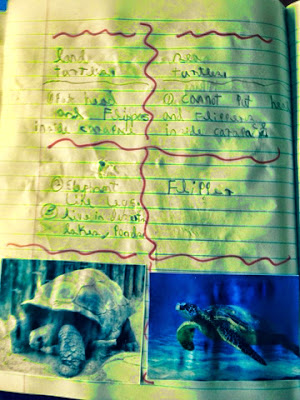 land
turtles
① Put head
and Flippes
inside carapace
② Elephant
like legs
③ live in
lakes, Ponds
sea
turtles
① cannot put head
and Flippers
inside carapace
Flipper